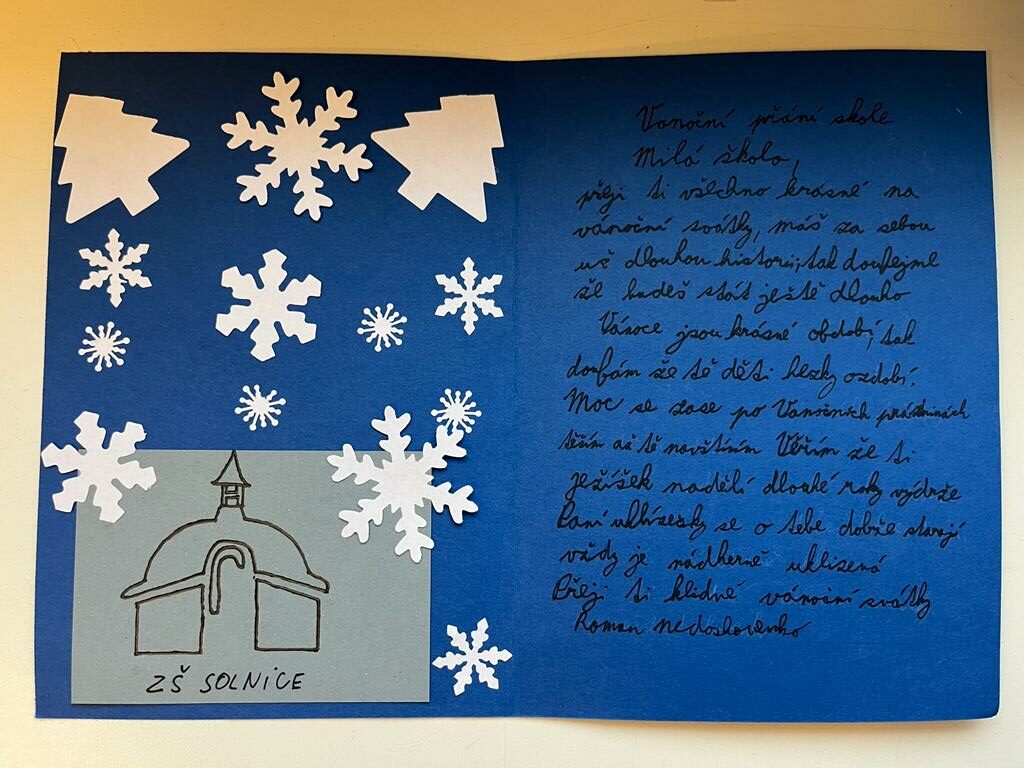 ZŠ SOLNICE
Vanoční přání skole
Milá školo,
přeji ti všechno krásné na
vánoční svátky, máš za sebou
už dlouhou historii, tak doufejme
že budeš stát ještě dlouho
Vánoce jsou krásné období, tak
doufám že tě děti hezky ozdobí.
Moc se zase po Vanočních prázdninách
těším až tě navštívím Věřím že ti
ježíšek nadělí dlouhé roky výdrže
Paní uklízečky se o tebe dobře starají
vždy je nádherně uklizená
Přeji ti klidné vánoční svátky
Roman